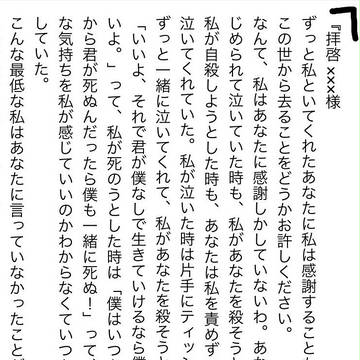 『拝啓 ×××様
ずっと私といてくれたあなたに私は感謝すること
この世から去ることをどうかお許しください。
なんて、私はあなたに感謝しかしていないわ。あな
じめられて泣いていた時も、私があなたを殺そうと
私が自殺しようとした時も、あなたは私を責めず
泣いてくれていた。私が泣いた時は片手にティッシ
ずっと一緒に泣いてくれて、私があなたを殺そうと
「いいよ、それで君が僕なしで生きていけるなら僕
いよ。」って、私が死のうとした時は「僕はいつ
から君が死ぬんだったら僕も一緒に死ぬ！」って、
な気持ちを私が感じていいのかわからなくていつ
していた。
こんな最低な私はあなたに言っていなかったこと